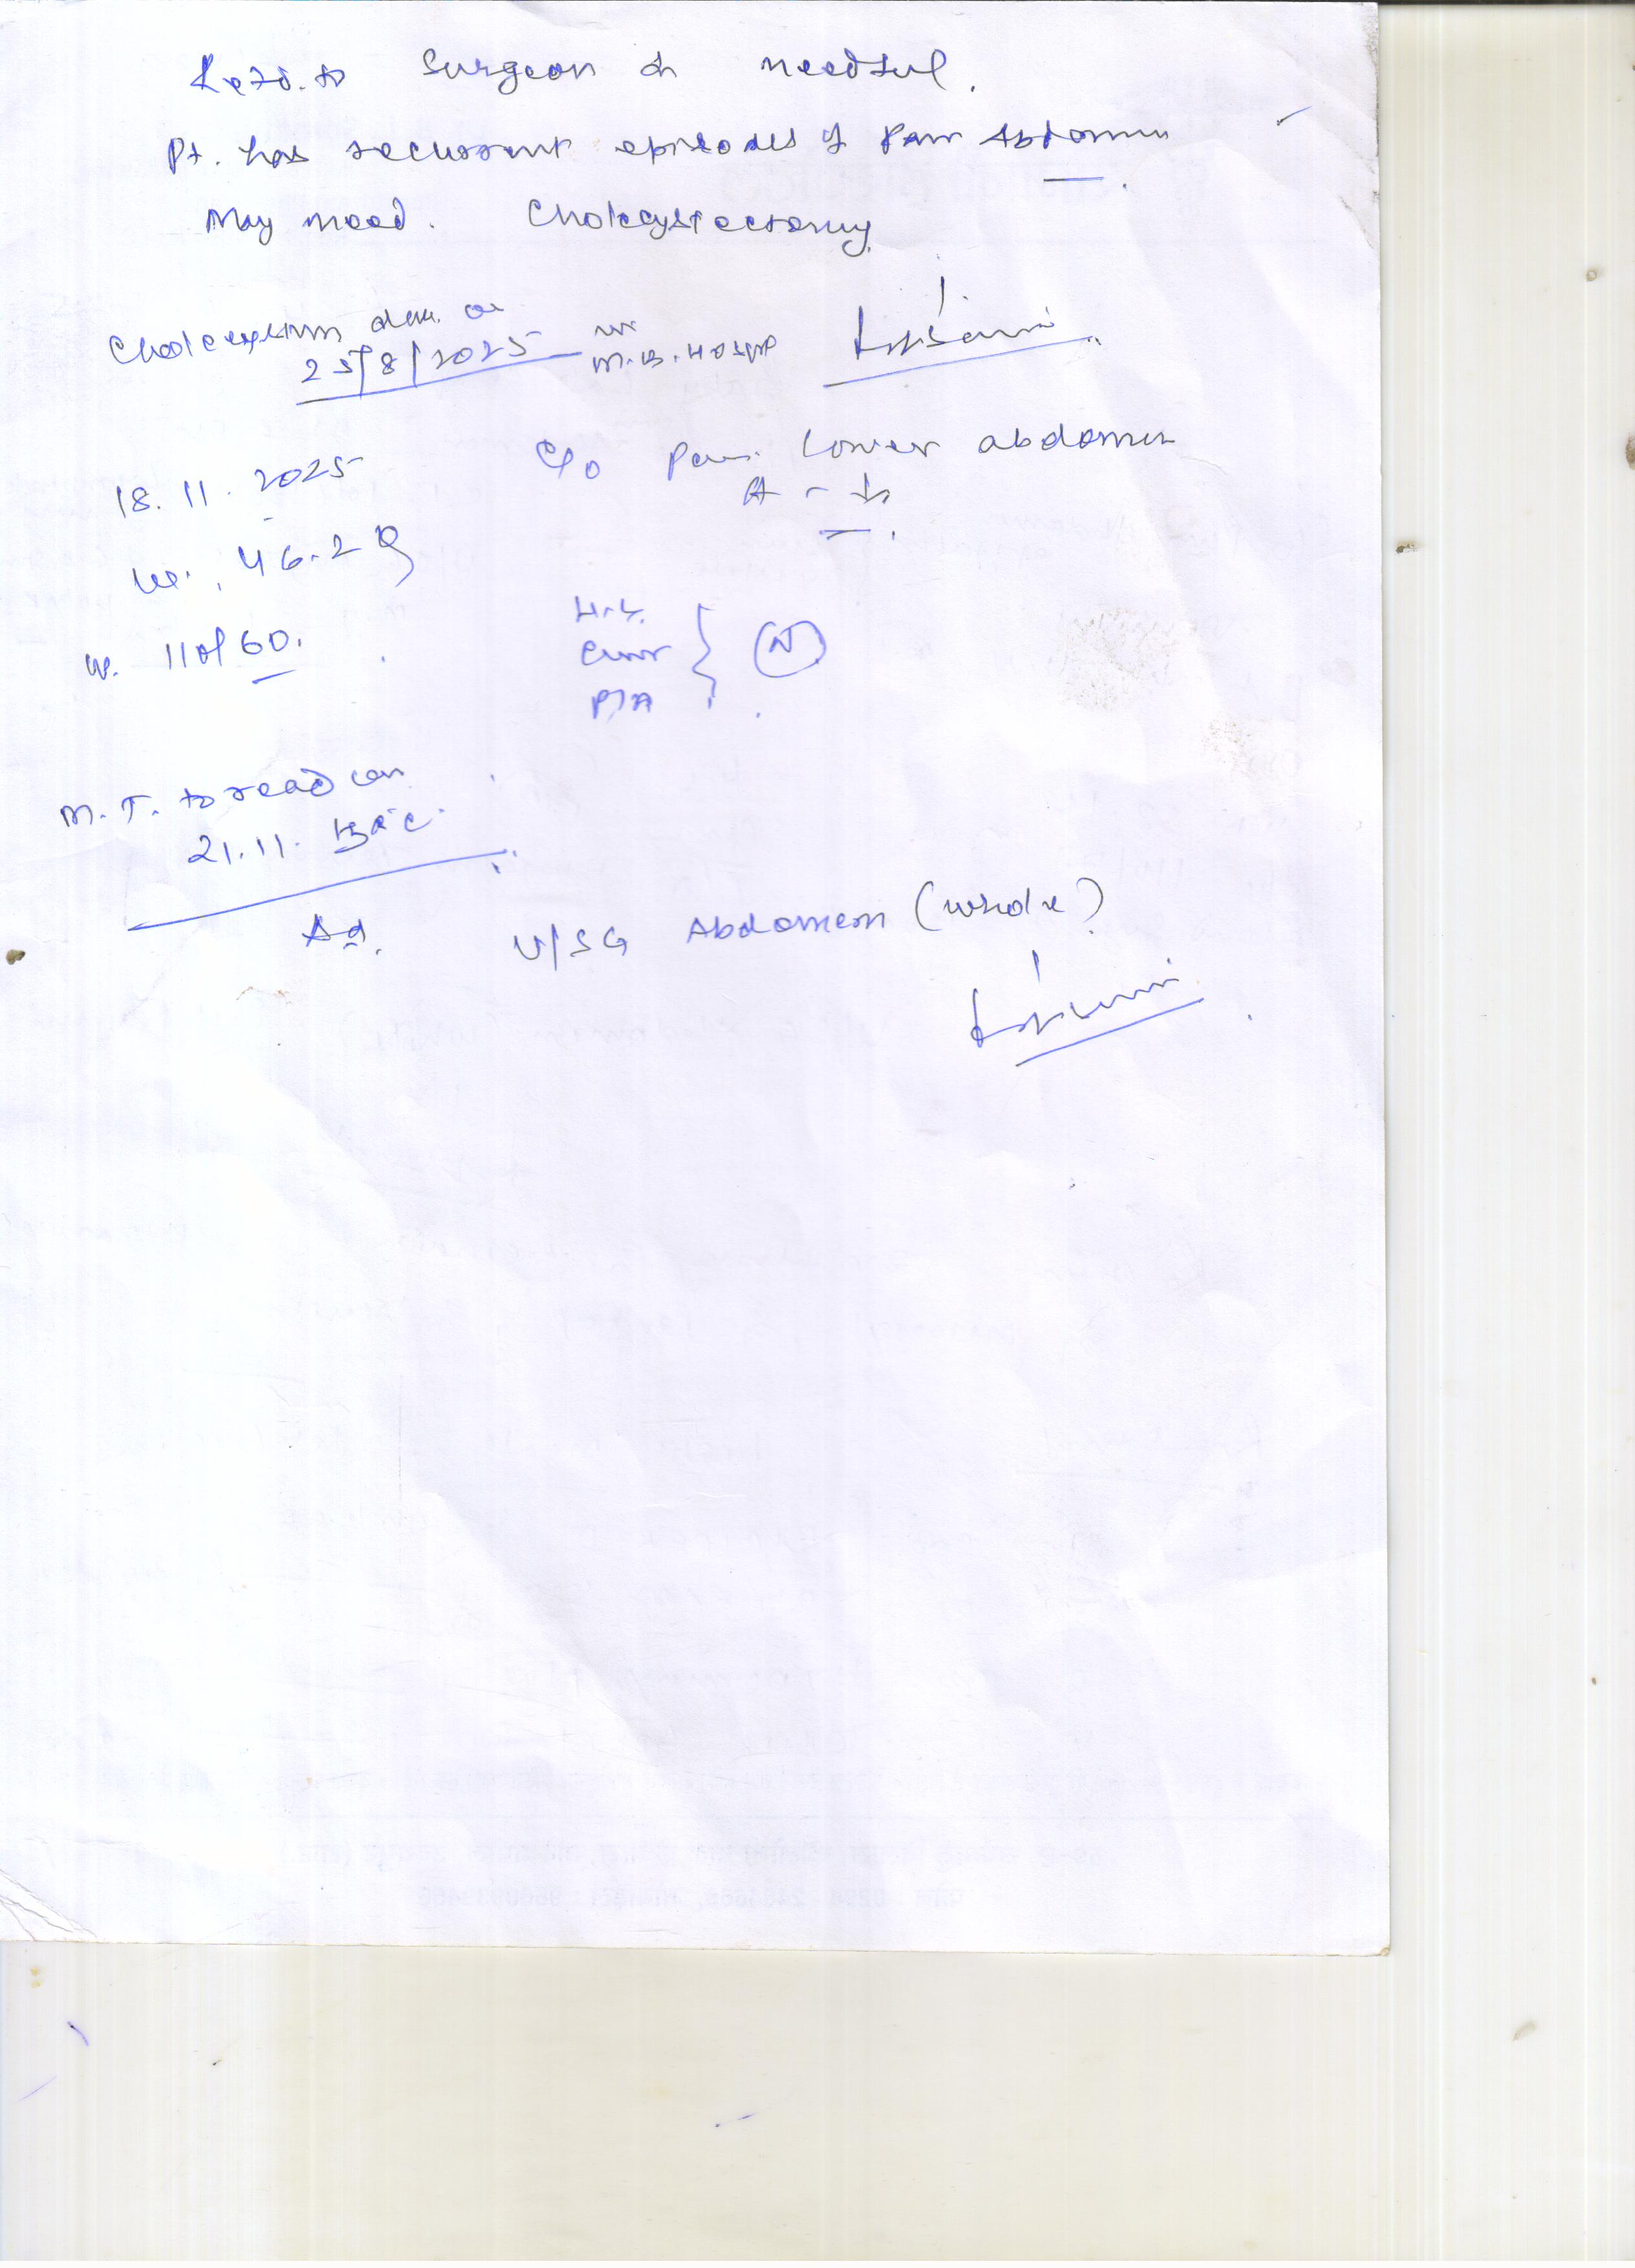 Refd. to Surgeon for needful.
Pt. has recurrent episodes of Pain Abdomen
May need. Cholecystectomy
Cholecystectomy done on
25/8/2025 in M.B. Hospi
18.11.2025 C/o Pain Lower abdomen
Wt. 46.2 kg
110/60.
P/A (N)
M.T. to read on
21.11.
Ad. U/SG Abdomen (whole)